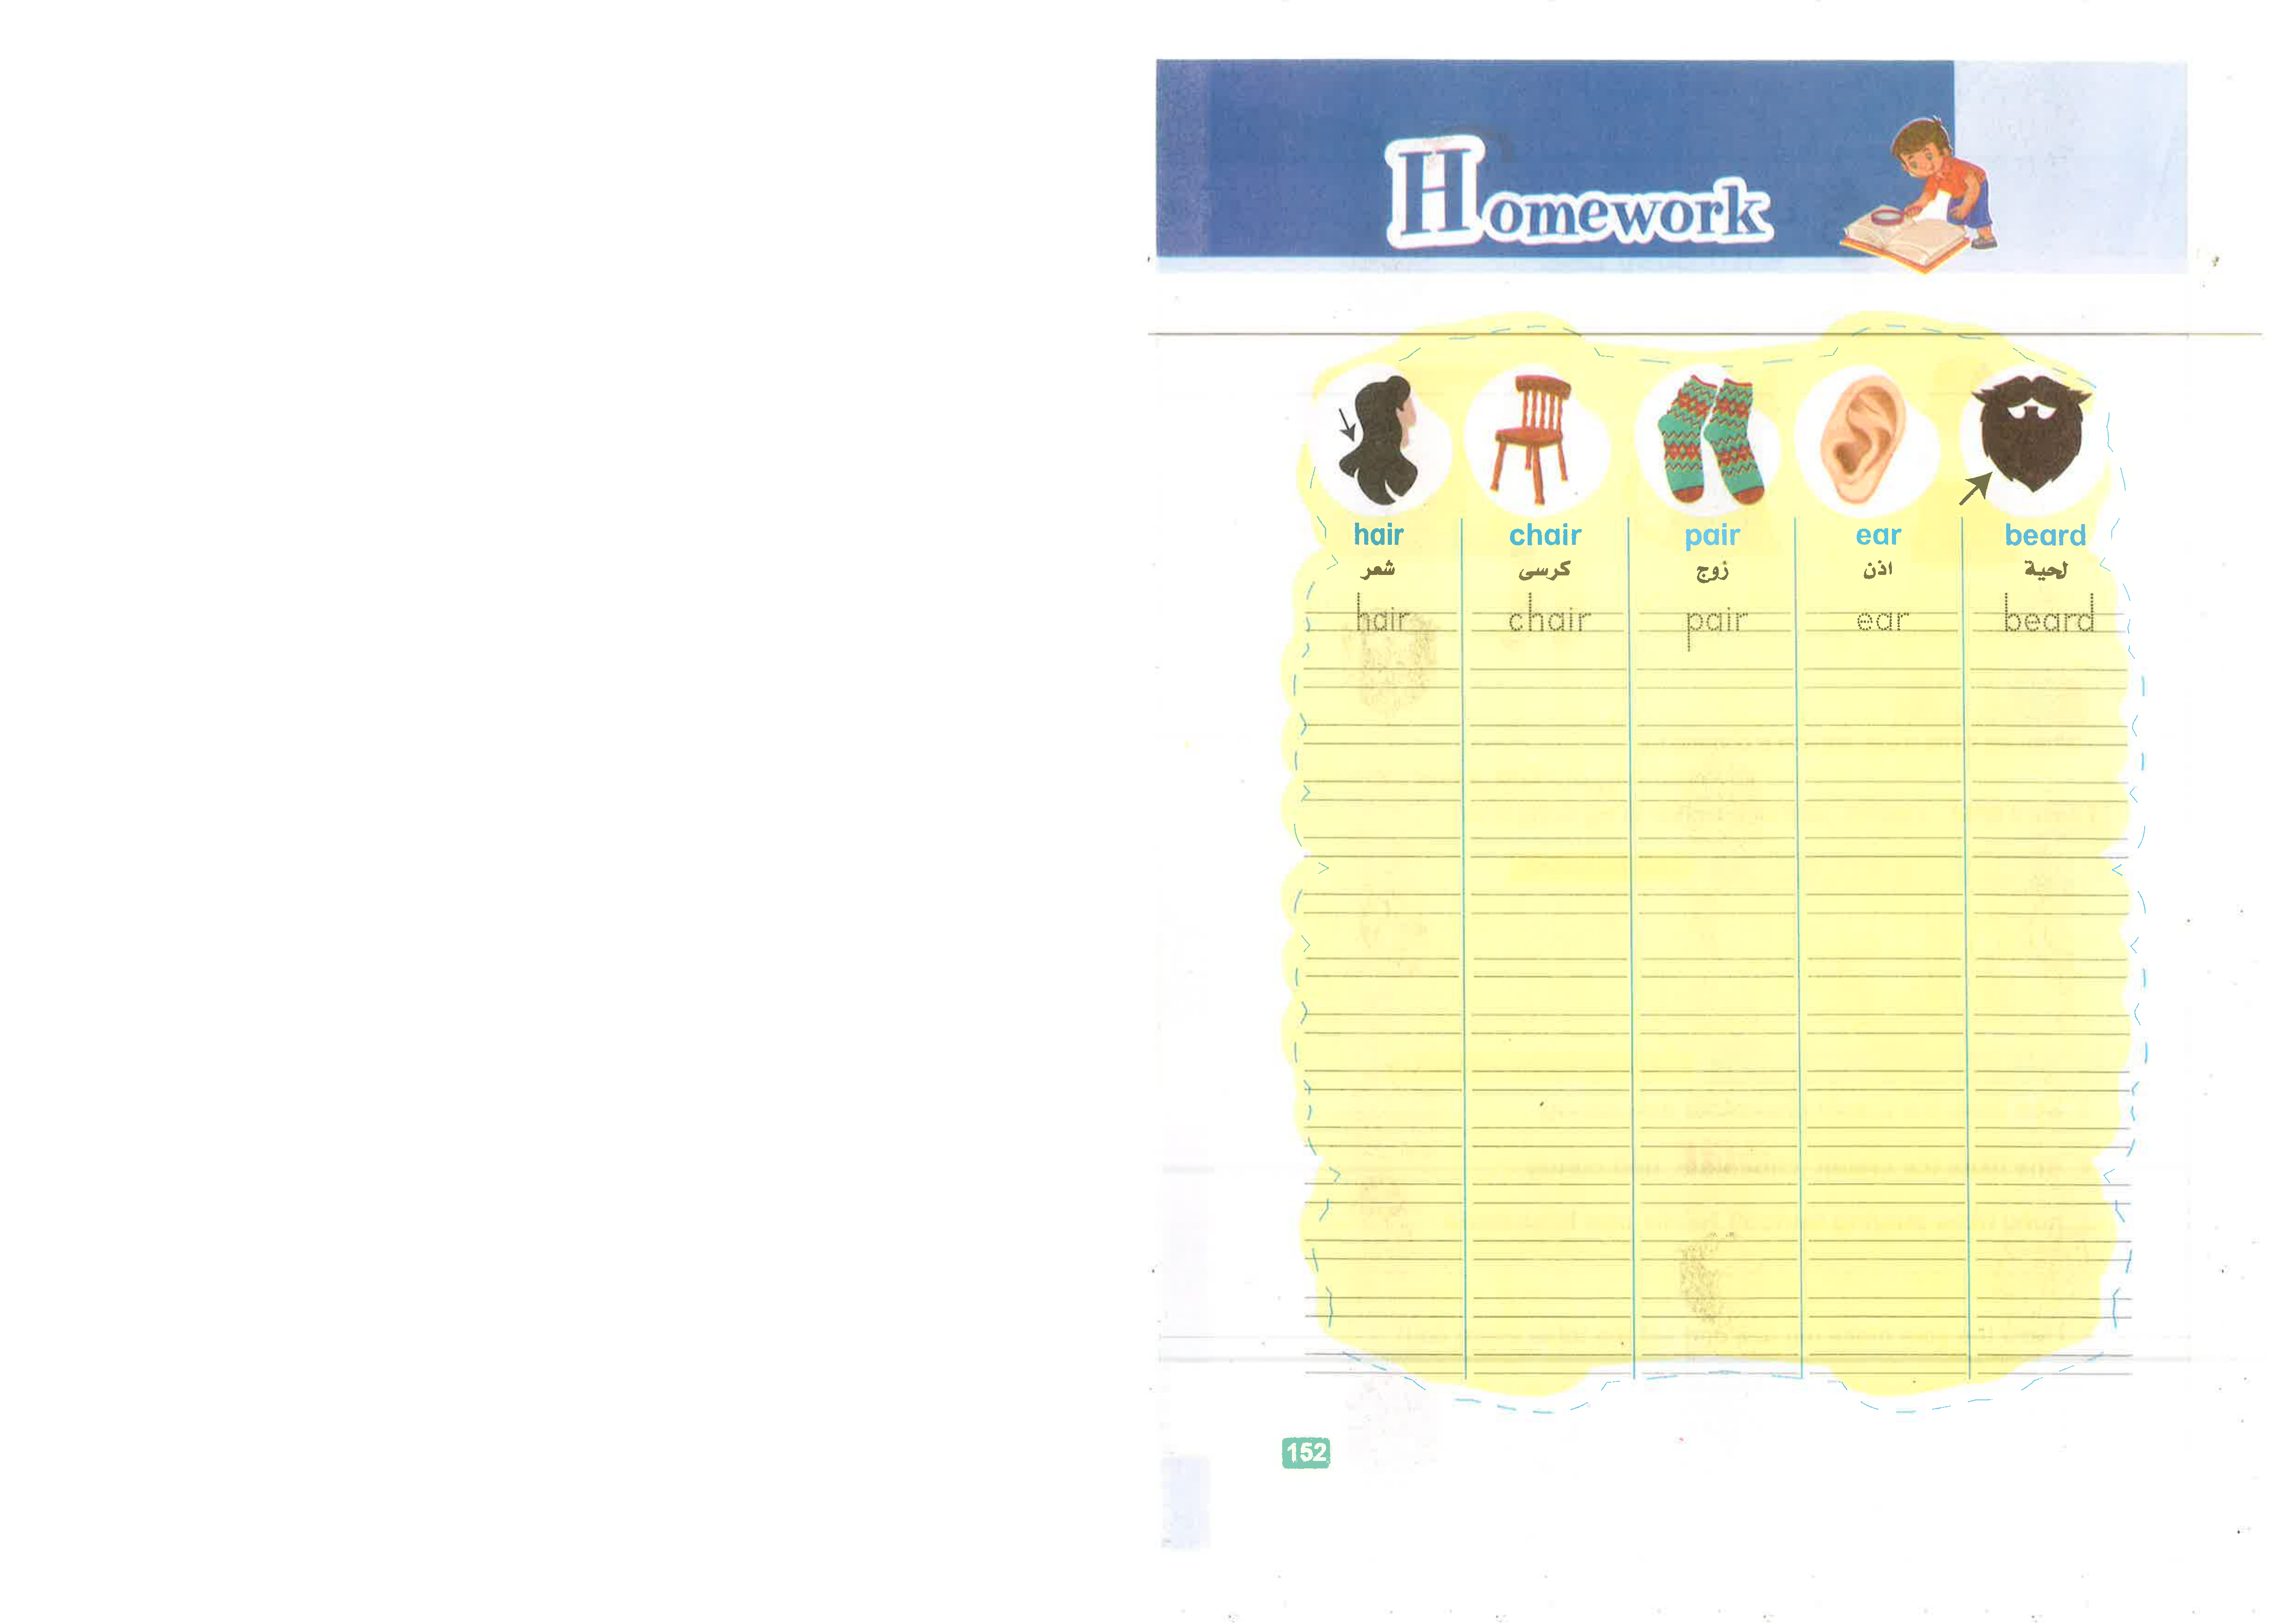 Homework
hair chair pair ear beard
شعر كرسى زوج اذن لحية
hair chair pair ear beard
152